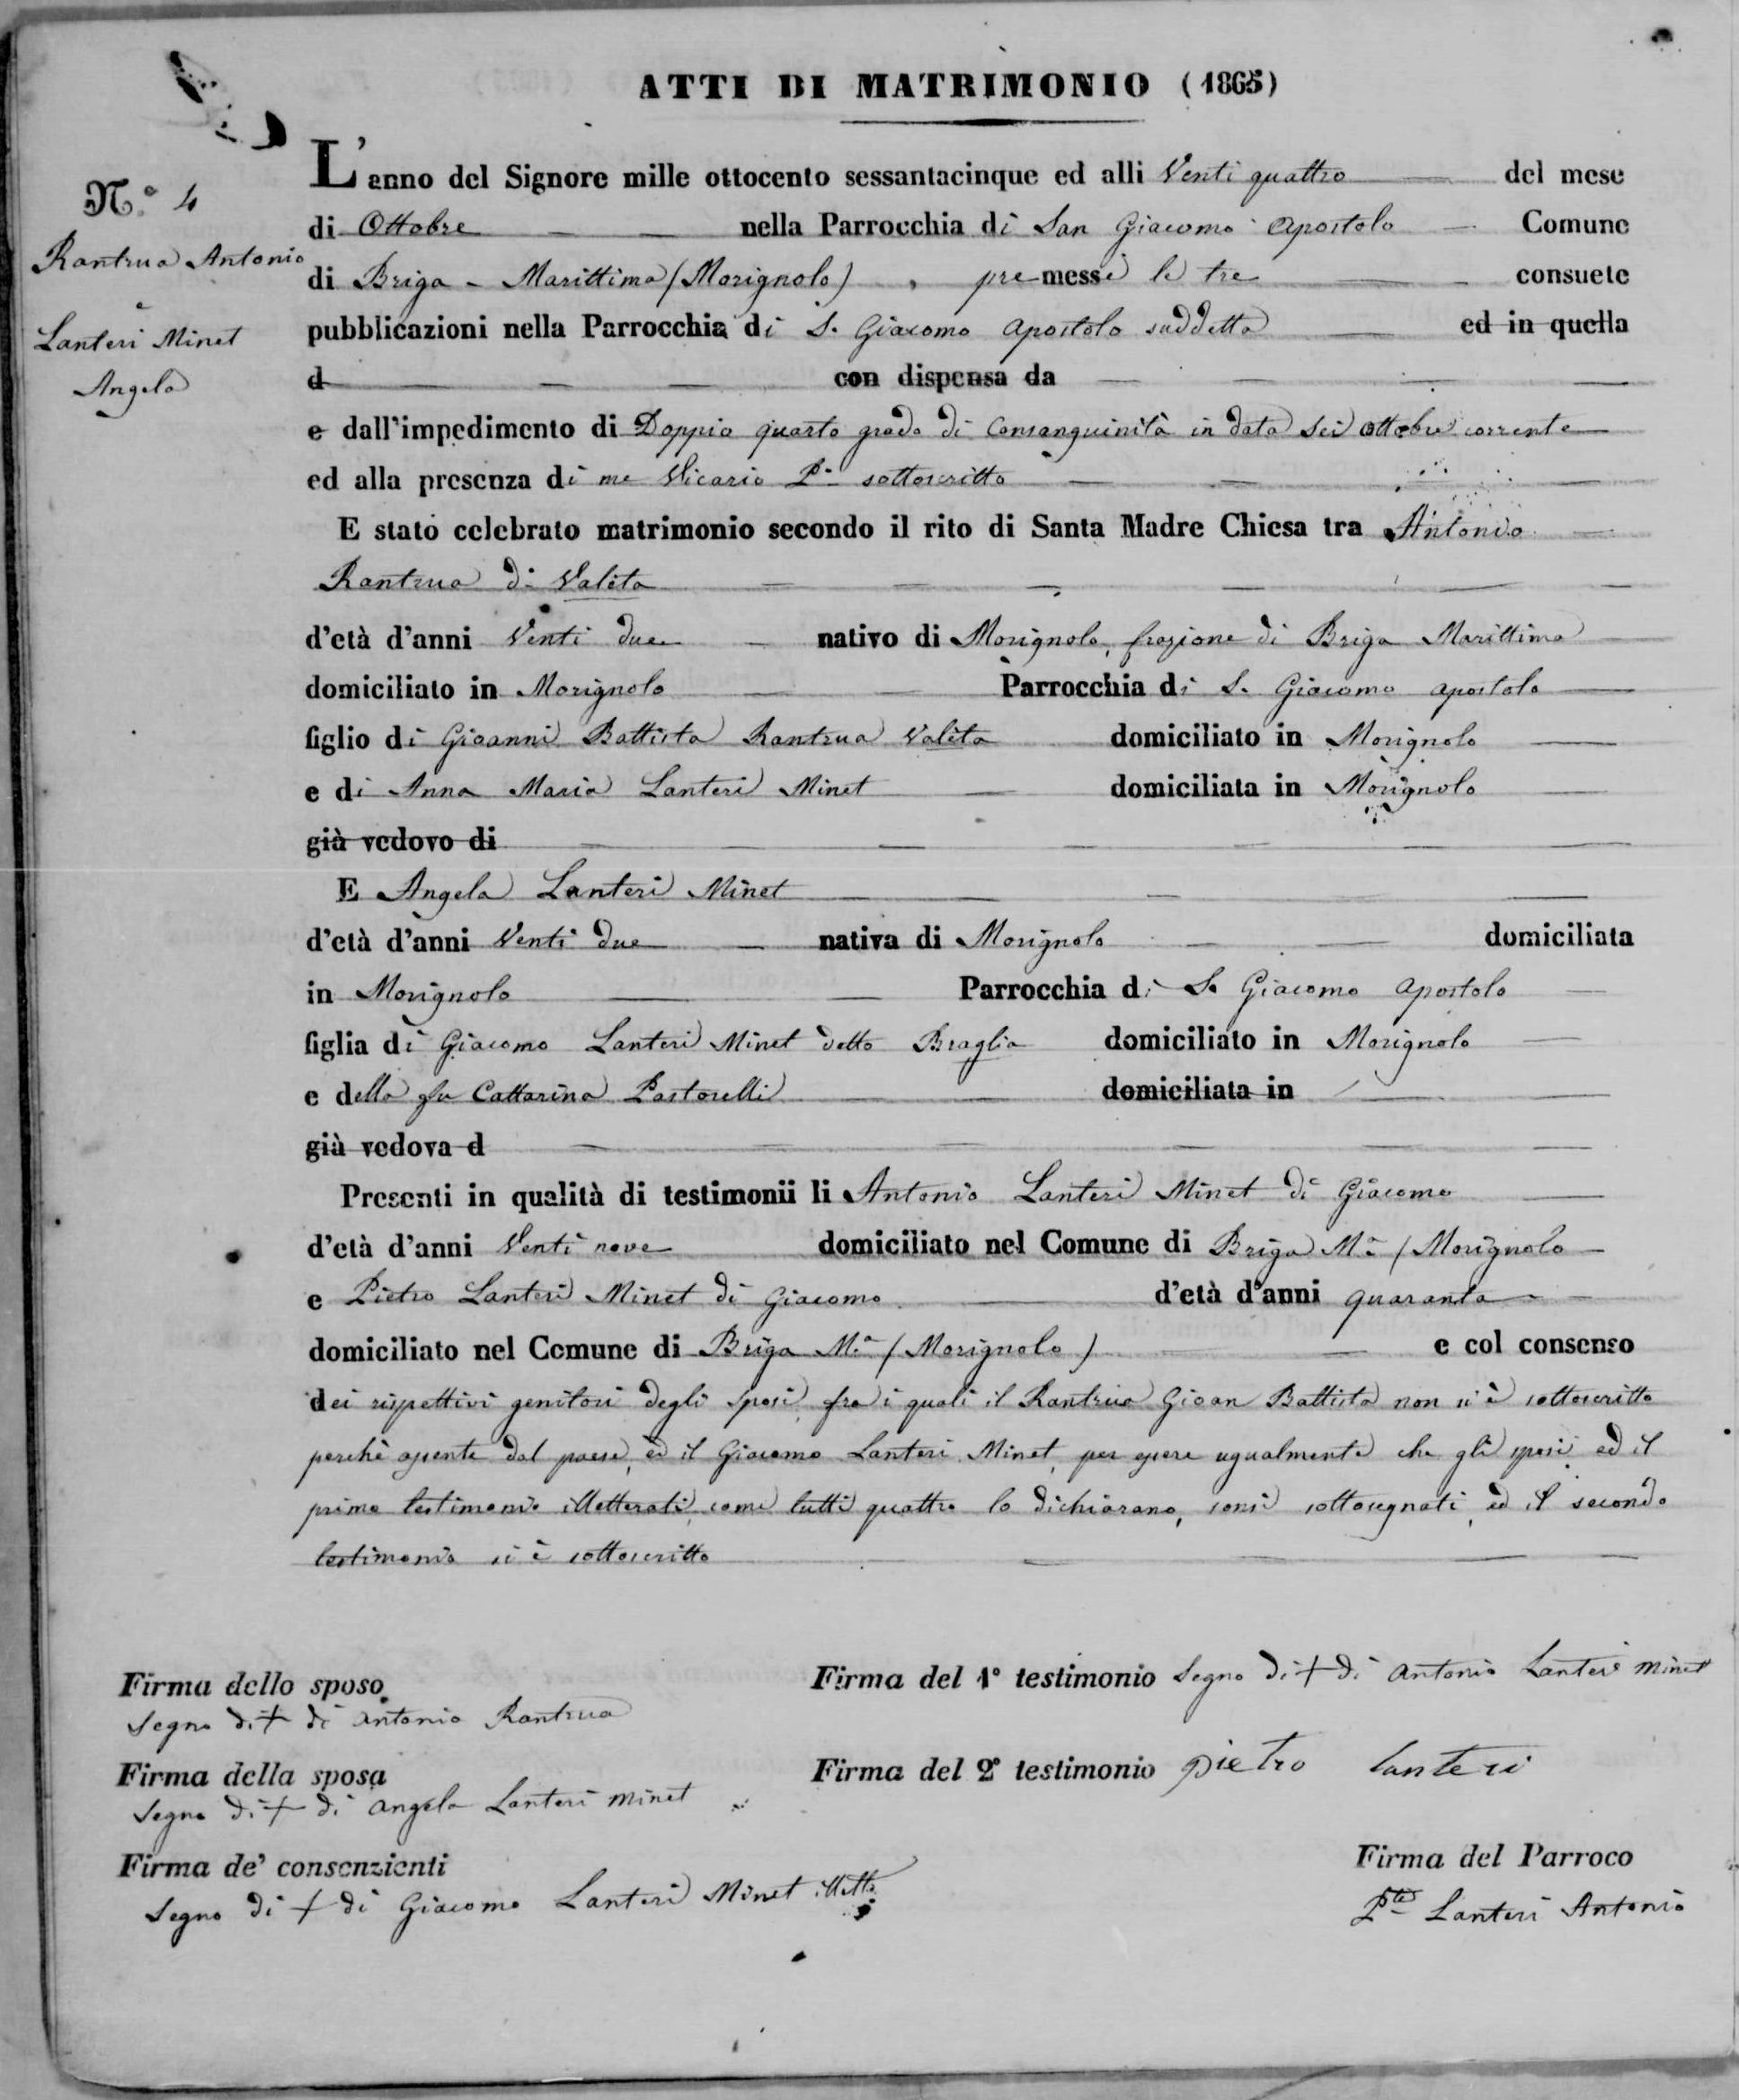 ATTI DI MATRIMONIO (1865)
N.o 4
Rantrua Antonio
e
Lanteri Minet
Angela
L'anno del Signore mille ottocento sessantacinque ed alli Venti quattro del mese
di Ottobre nella Parrocchia di San Giacomo Apostolo Comune
di Briga - Marittima (Morignolo), premesse le tre consuete
pubblicazioni nella Parrocchia di S. Giacomo apostolo suddetta ed in quella
d con dispensa da
e dall'impedimento di Doppio quarto grado di Consanguinità in data Sei ottobre corrente
ed alla presenza di me Vicario P. sottoscritto
E stato celebrato matrimonio secondo il rito di Santa Madre Chiesa tra Antonio
Rantrua di Valita
d'età d'anni Venti due nativo di Morignolo, frazione di Briga Marittima
domiciliato in Morignolo Parrocchia di S. Giacomo apostolo
figlio di Gioanni Battista Rantrua Valita domiciliato in Morignolo
e di Anna Maria Lanteri Minet domiciliata in Morignolo
già vedovo di
E Angela Lanteri Minet
d'età d'anni Venti due nativa di Morignolo domiciliata
in Morignolo Parrocchia di S. Giacomo apostolo
figlia di Giacomo Lanteri Minet detto Braglia domiciliato in Morignolo
e della fu Cattarina Pastorelli domiciliata in
già vedova d
Presenti in qualità di testimonii li Antonio Lanteri Minet di Giacomo
d'età d'anni Venti nove domiciliato nel Comune di Briga M.a (Morignolo
e Pietro Lanteri Minet di Giacomo d'età d'anni quaranta
domiciliato nel Comune di Briga M.a (Morignolo) e col consenso
dei rispettivi genitori degli sposi, fra i quali il Rantrua Gioan Battista non si è sottoscritto
perchè assente dal paese, ed il Giacomo Lanteri Minet, per essere ugualmente che gli sposi, ed il
primo testimonio illetterati, come tutti quattro lo dichiarano, sonsi sottosegnati, ed il secondo
testimonio si è sottoscritto
Firma dello sposo
Segno di + di Antonio Rantrua
Firma del 1º testimonio Segno di + di Antonio Lanteri Minet
Firma della sposa
Segno di + di Angela Lanteri Minet
Firma del 2º testimonio pietro lanteri
Firma de' consenzienti
Segno di + di Giacomo Lanteri Minet illett.
Firma del Parroco
P.te Lanteri Antonio